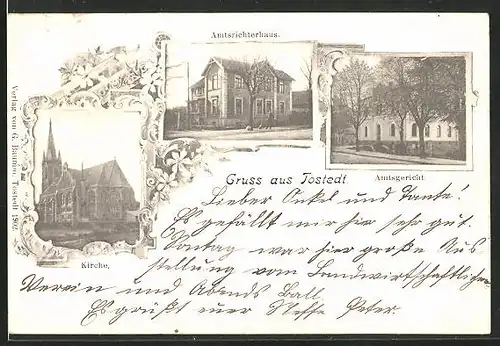 Amtsrichterhaus.
Verlag von G. Tostedt 1902.
Amtsgericht.
Kirche.
Gruss aus Tostedt.
Lieber Onkel und Tante!
Es gefällt mir hier sehr gut.
Sontag war hier große Aus
stellung vom Landwirtschaftlichen
Verein und Abends Ball.
Es grüßt euer Neffe Peter.